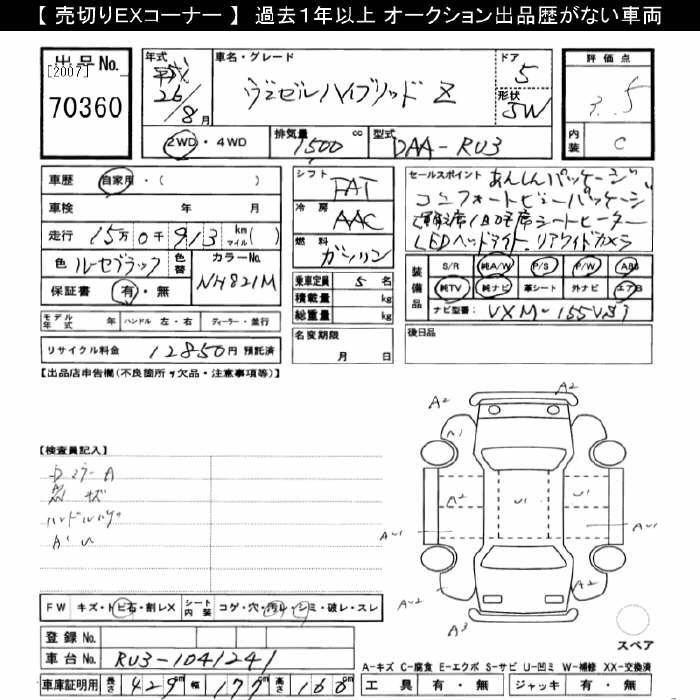 【 売切りEXコーナー 】 過去1年以上 オークション出品歴がない車両
出品No. [2007] 70360
年式 26/8月
車名・グレード ヴェゼルハイブリッド Z
ドア 5
形状 SW
2WD・4WD
排気量 1500 cc
型式 DAA-RU3
評価点 3.5
内装 C
車歴 自家用・( )
車検 年 月
走行 15万0千913 km マイル( )
色 ルーセブラック 色替
カラーNo. NH821M
保証書 有・無
モデル年式 年 ハンドル 左・右 ディーラー・並行
リサイクル料金 12850円 預託済
シフト FAT
冷房 AAC
燃料 ガソリン
乗車定員 5 名
積載量 kg
総重量 kg
名変期限 月 日
セールスポイント あんしんパッケージ
コンフォートビューパッケージ
運転席/助手席シートヒーター
LEDヘッドライト、リアワイドカメラ
装備品 S/R 純A/W P/S P/W ABS
純TV 純ナビ 革シート 外ナビ エアB
ナビ型番: VXM-155VSi
後日品
【出品店申告欄(不良箇所・欠品・注意事項等)】
【検査員記入】
ハンドル
A2
A2
A1
A2
U1
U1
A2
A2
A3
スペア
FW キズ・トビ石・割レX シート内装 コゲ・穴・汚レ・シミ・破レ・スレ
登録No.
車台No. RU3-1041241
車庫証明用 長さ 429cm 幅 177cm 高さ 160cm
A-キズ C-腐食 E-エクボ S-サビ U-凹ミ W-補修 XX-交換済
工具 有・無 ジャッキ 有・無